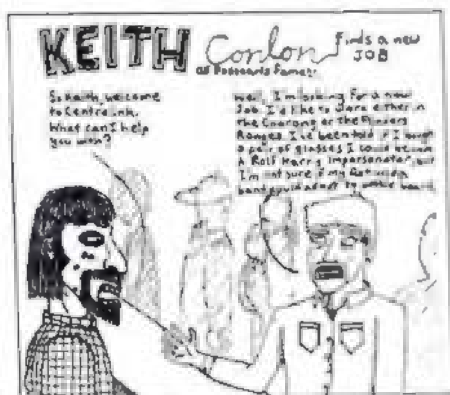 KEITH Conlon Finds a new
JOB
of Postcards Fame:
So Keith, welcome
to Centrelink.
What can I help
you with?
Well, I'm looking for a new
Job. I'd like to work either in
the Coorong or the Flinders
Ranges. I've been told if I bought
a pair of glasses I could become
A Rolf Harry impersonator, but
I'm not sure if my
band could adapt to wobble board.